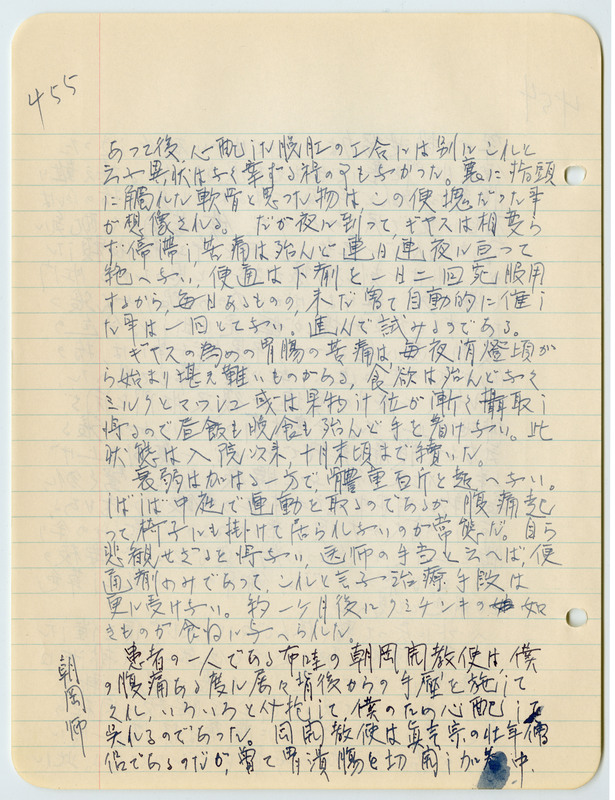 455
あつて後、心配した脱肛の工合には別にこれと
云ふ異状はなく案ずる程の事もなかつた。裏に指頭
に觸れた軟骨と思つた物は、この便塊だつた事
が想像される。 だが夜に到つて、ギヤスは相変ら
ず停滞し、苦痛は殆んど連日連夜に亘つて
絶へない、便通は下剤を一日二回宛服用
するから、毎日あるものの、未だ曽て自動的に催し
た事は一回とてない。進んで試みるのである。
ギヤスの為めの胃腸の苦痛は毎夜消燈頃か
ら始まり堪え難いものがある、食欲は殆んどなく
ミルクとマツシユ或は果物汁位が漸く攝取し
得るので昼飯も晩食も殆んど手を着けない。此
状態は入院以来、十月末頃まで續いた。
衰弱は加はる一方で、體重百斤を超へない。
しばしば中庭で運動を取るのであるが腹痛起
つて、椅子にも掛けて居られないのが常態だ。自ら
悲観せざるを得ない、医師の手当と云へば、便
通剤のみであつて、これと言ふ治療手段は
更に受けない。約一ケ月後にクミチンキの如
きものが食后に与へられた。
朝岡師
患者の一人である布哇の朝岡開教使は、僕
の腹痛ある度に屡々背後からの手壓を施して
くれ、いろいろと介抱して、僕のため心配して
呉れるのであつた。 同開教使は眞言宗の壮年僧
侶であるのだが、曽て胃潰腸を切開し加養中、